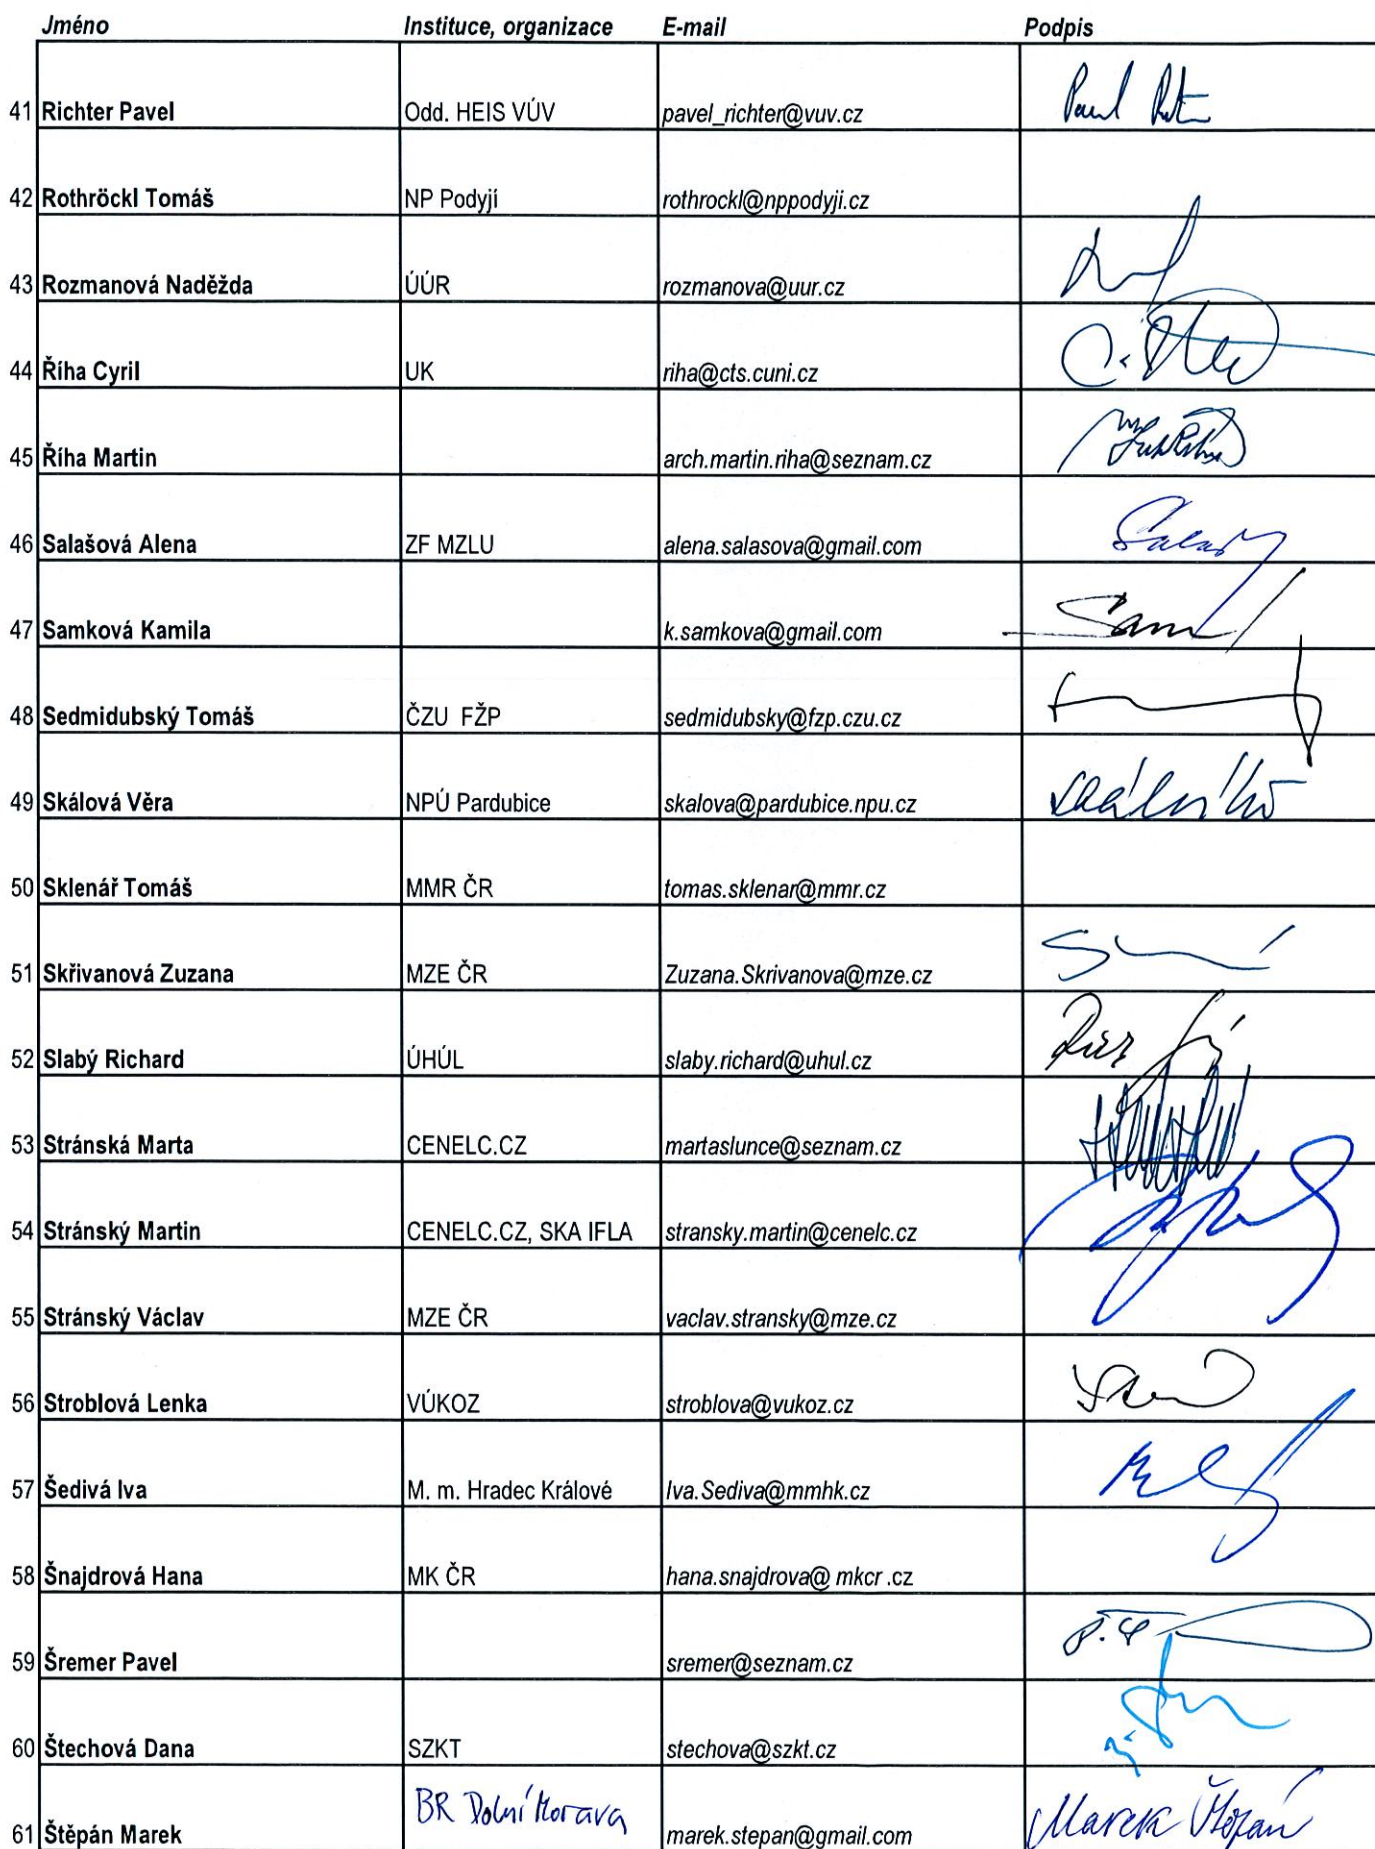 Jméno Instituce, organizace E-mail Podpis
41 Richter Pavel Odd. HEIS VÚV pavel_richter@vuv.cz
42 Rothröckl Tomáš NP Podyjí rothrockl@nppodyji.cz
43 Rozmanová Naděžda ÚÚR rozmanova@uur.cz
44 Říha Cyril UK riha@cts.cuni.cz
45 Říha Martin arch.martin.riha@seznam.cz
46 Salašová Alena ZF MZLU alena.salasova@gmail.com
47 Samková Kamila k.samkova@gmail.com
48 Sedmidubský Tomáš ČZU FŽP sedmidubsky@fzp.czu.cz
49 Skálová Věra NPÚ Pardubice skalova@pardubice.npu.cz
50 Sklenář Tomáš MMR ČR tomas.sklenar@mmr.cz
51 Skřivanová Zuzana MZE ČR Zuzana.Skrivanova@mze.cz
52 Slabý Richard ÚHÚL slaby.richard@uhul.cz
53 Stránská Marta CENELC.CZ martaslunce@seznam.cz
54 Stránský Martin CENELC.CZ, SKA IFLA stransky.martin@cenelc.cz
55 Stránský Václav MZE ČR vaclav.stransky@mze.cz
56 Stroblová Lenka VÚKOZ stroblova@vukoz.cz
57 Šedivá Iva M. m. Hradec Králové Iva.Sediva@mmhk.cz
58 Šnajdrová Hana MK ČR hana.snajdrova@ mkcr .cz
59 Šremer Pavel sremer@seznam.cz
60 Štechová Dana SZKT stechova@szkt.cz
61 Štěpán Marek BR Dolní Morava marek.stepan@gmail.com Marek Štěpán